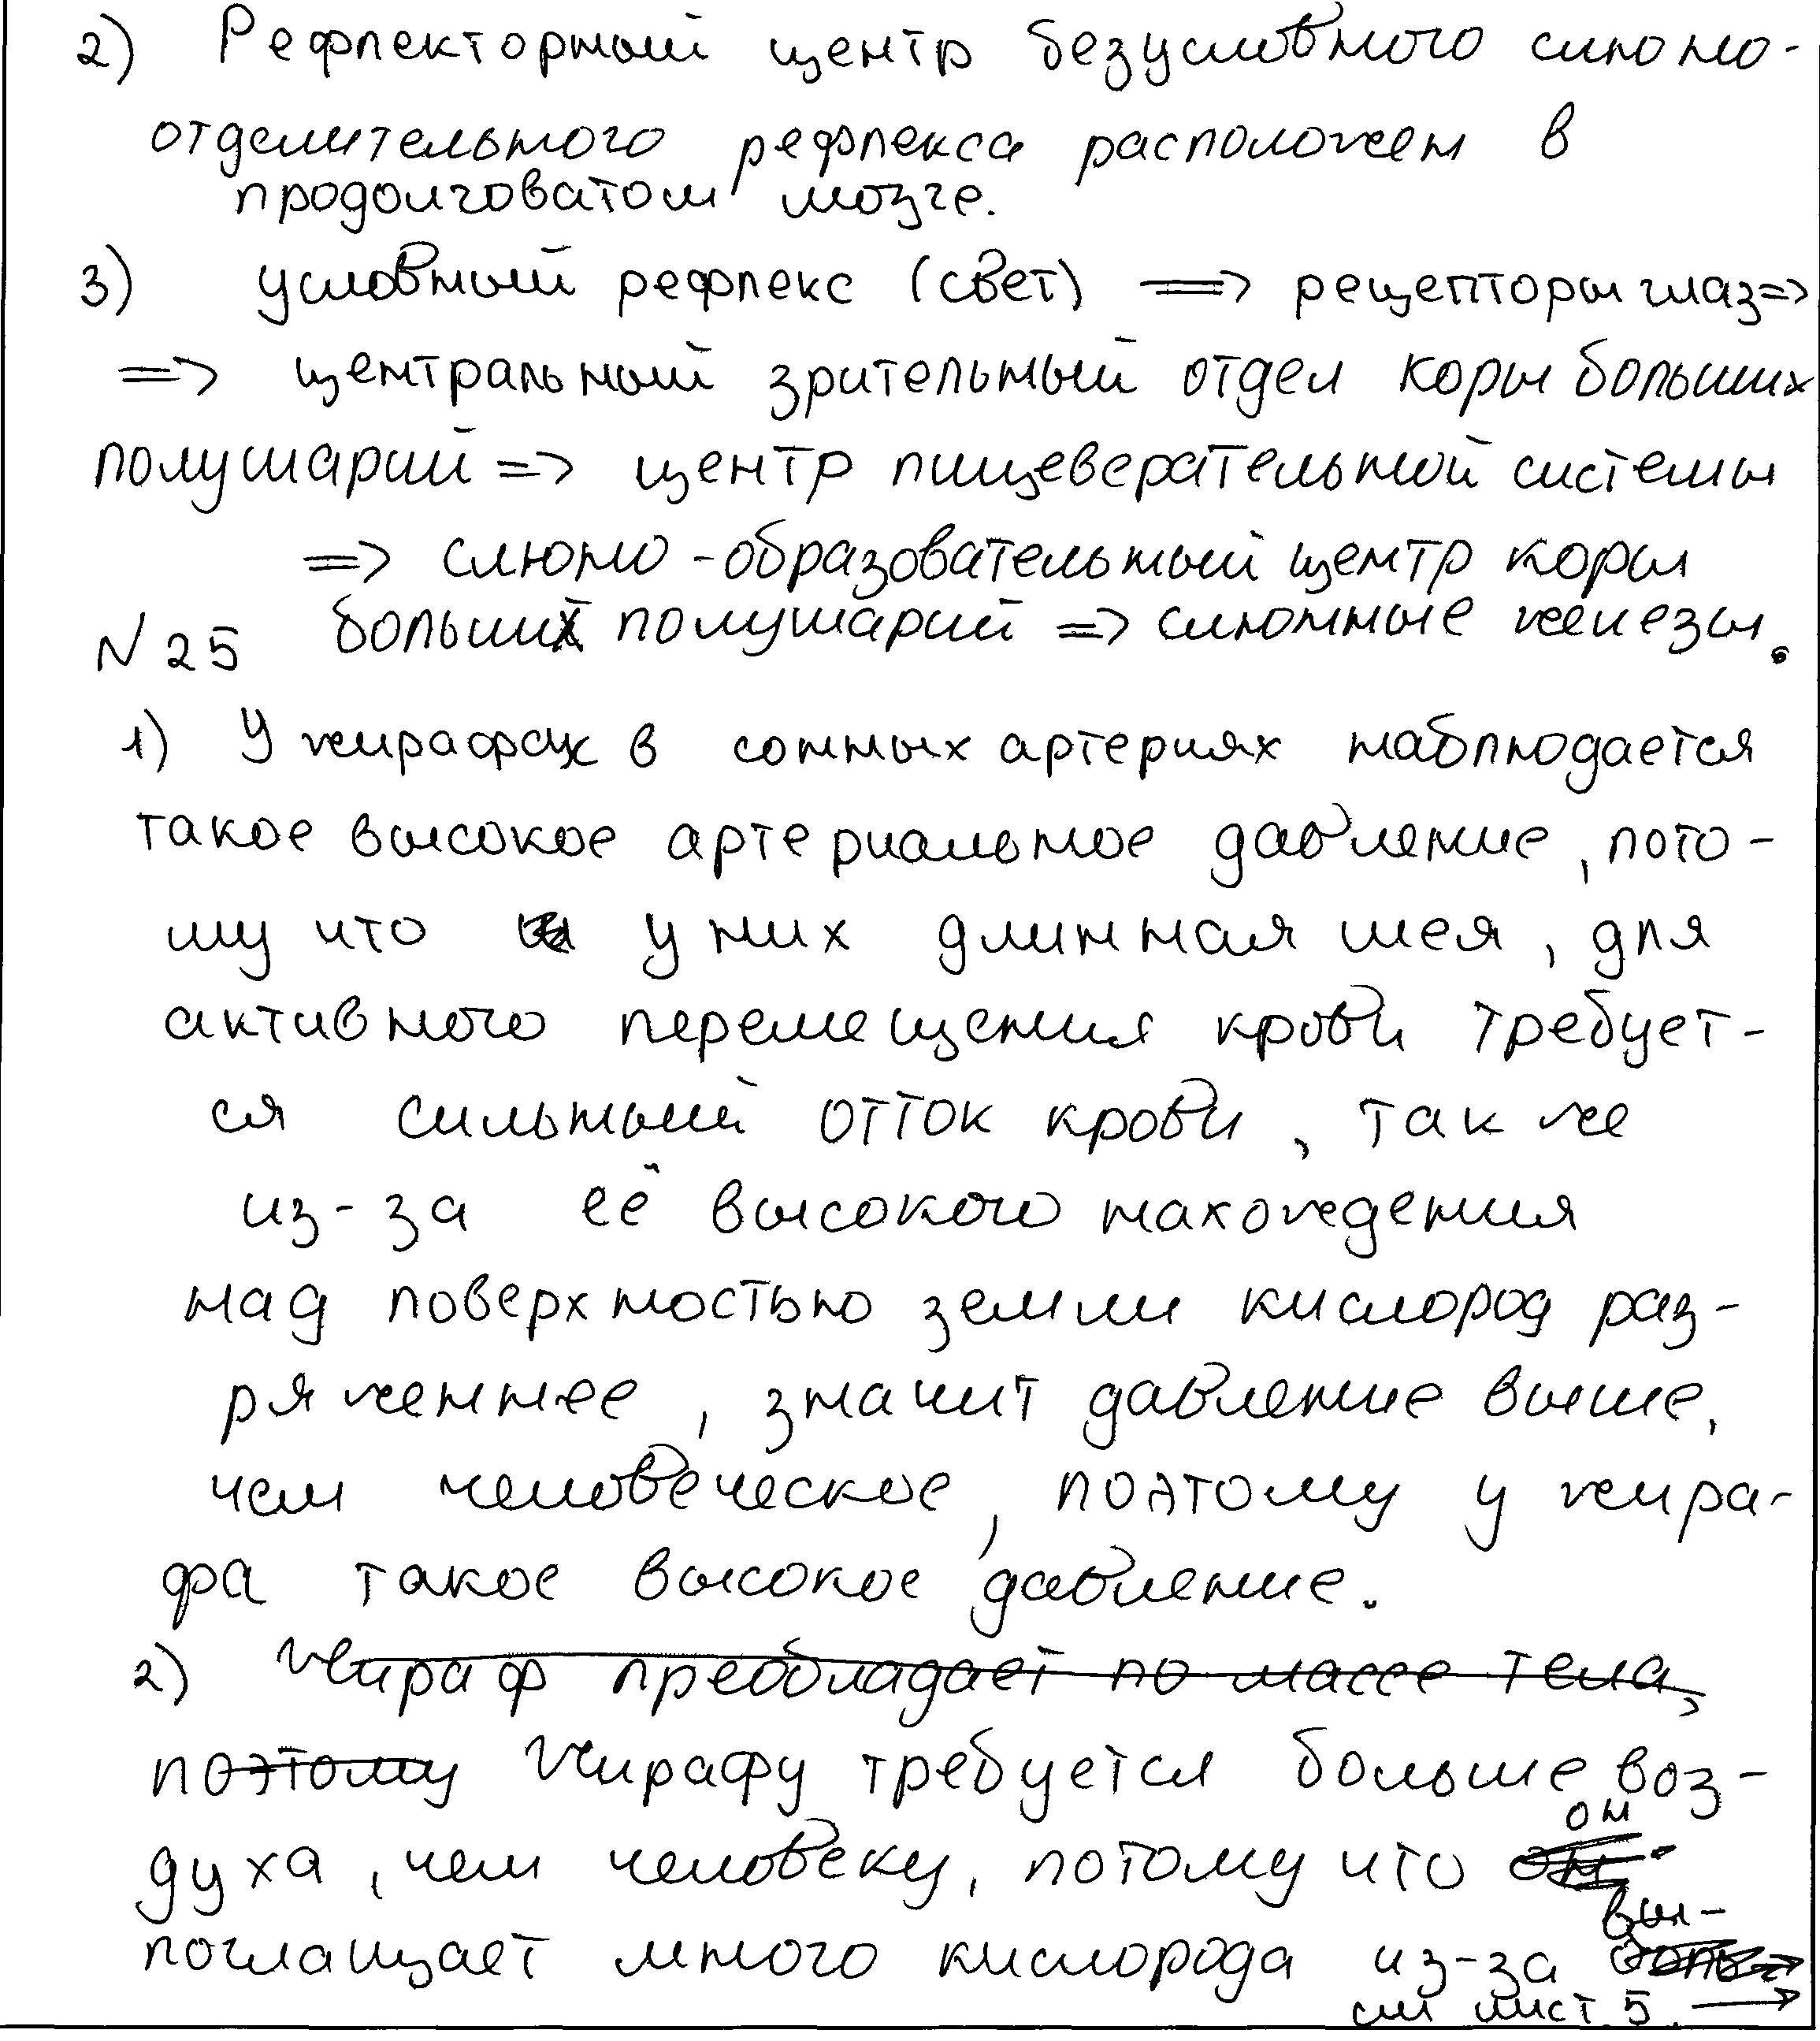 2) Рефлекторный центр безусловного слюно-
отделительного рефлекса расположен в
продолговатом мозге.
3) условный рефлекс (свет) => рецепторы глаз =>
=> центральный зрительный отдел коры больших
полушарий => центр пищеверательной системы
=> слюно-образовательный центр коры
больших полушарий => слюнные железы.
N 25
1) У жирафах в сонных артериях наблюдается
такое высокое артериальное давление, пото-
му что у них длинная шея, для
активного перемещения крови требует-
ся сильный отток крови, так же
из-за её высокого нахождения
над поверхностью земли кислород раз-
ряженнее, значит давление выше,
чем человеческое, поэтому у жира-
фа такое высокое давление.
2) Жираф преобладает по массе тела,
поэтому Жирафу требуется больше воз-
духа, чем человеку, потому что он
поглащает много кислорода из-за выл-
см лист. 5. →